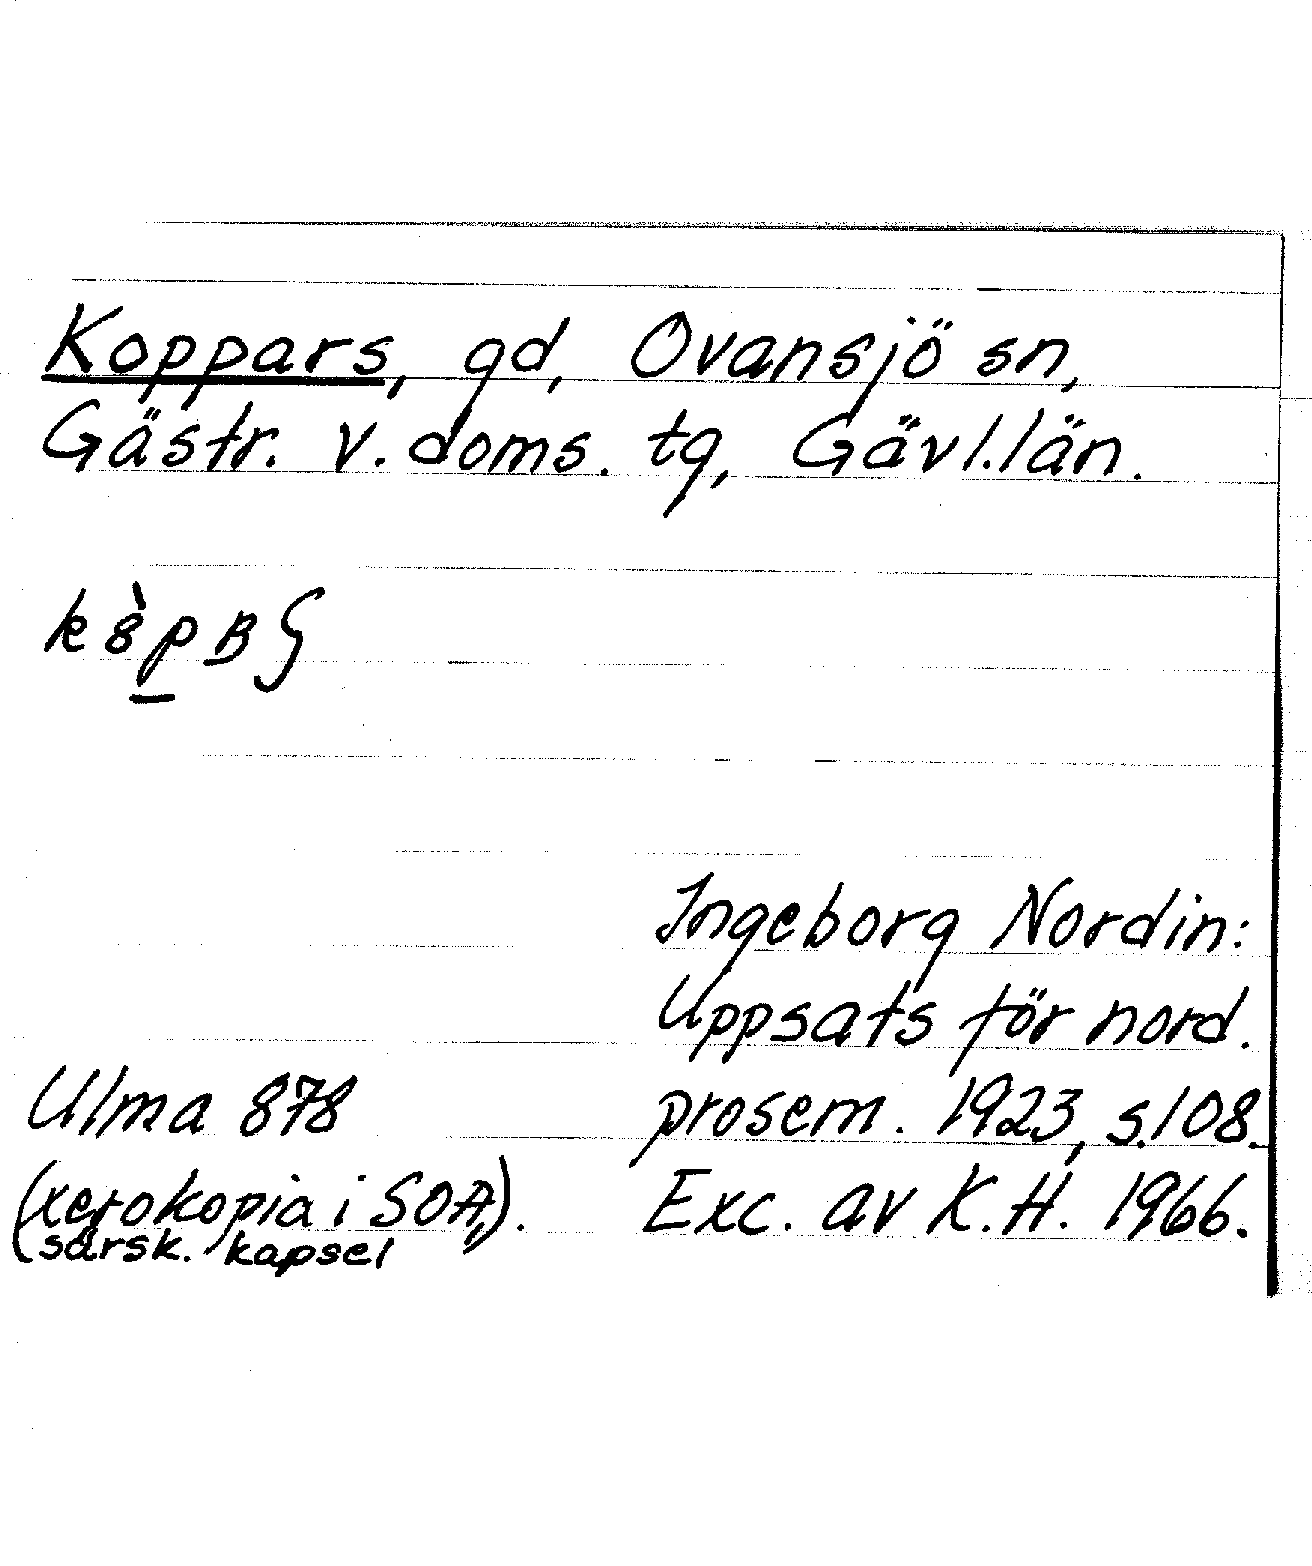 Koppars, gd, Ovansjö sn,
Gästr. v. doms. tg, Gävl. län.
Ingeborg Nordin:
Uppsats för nord.
Ulma 878 prosem. 1923, s. 108.
(xerokopia i SOA, Exc. av K. H. 1966.
särsk. kapsel).